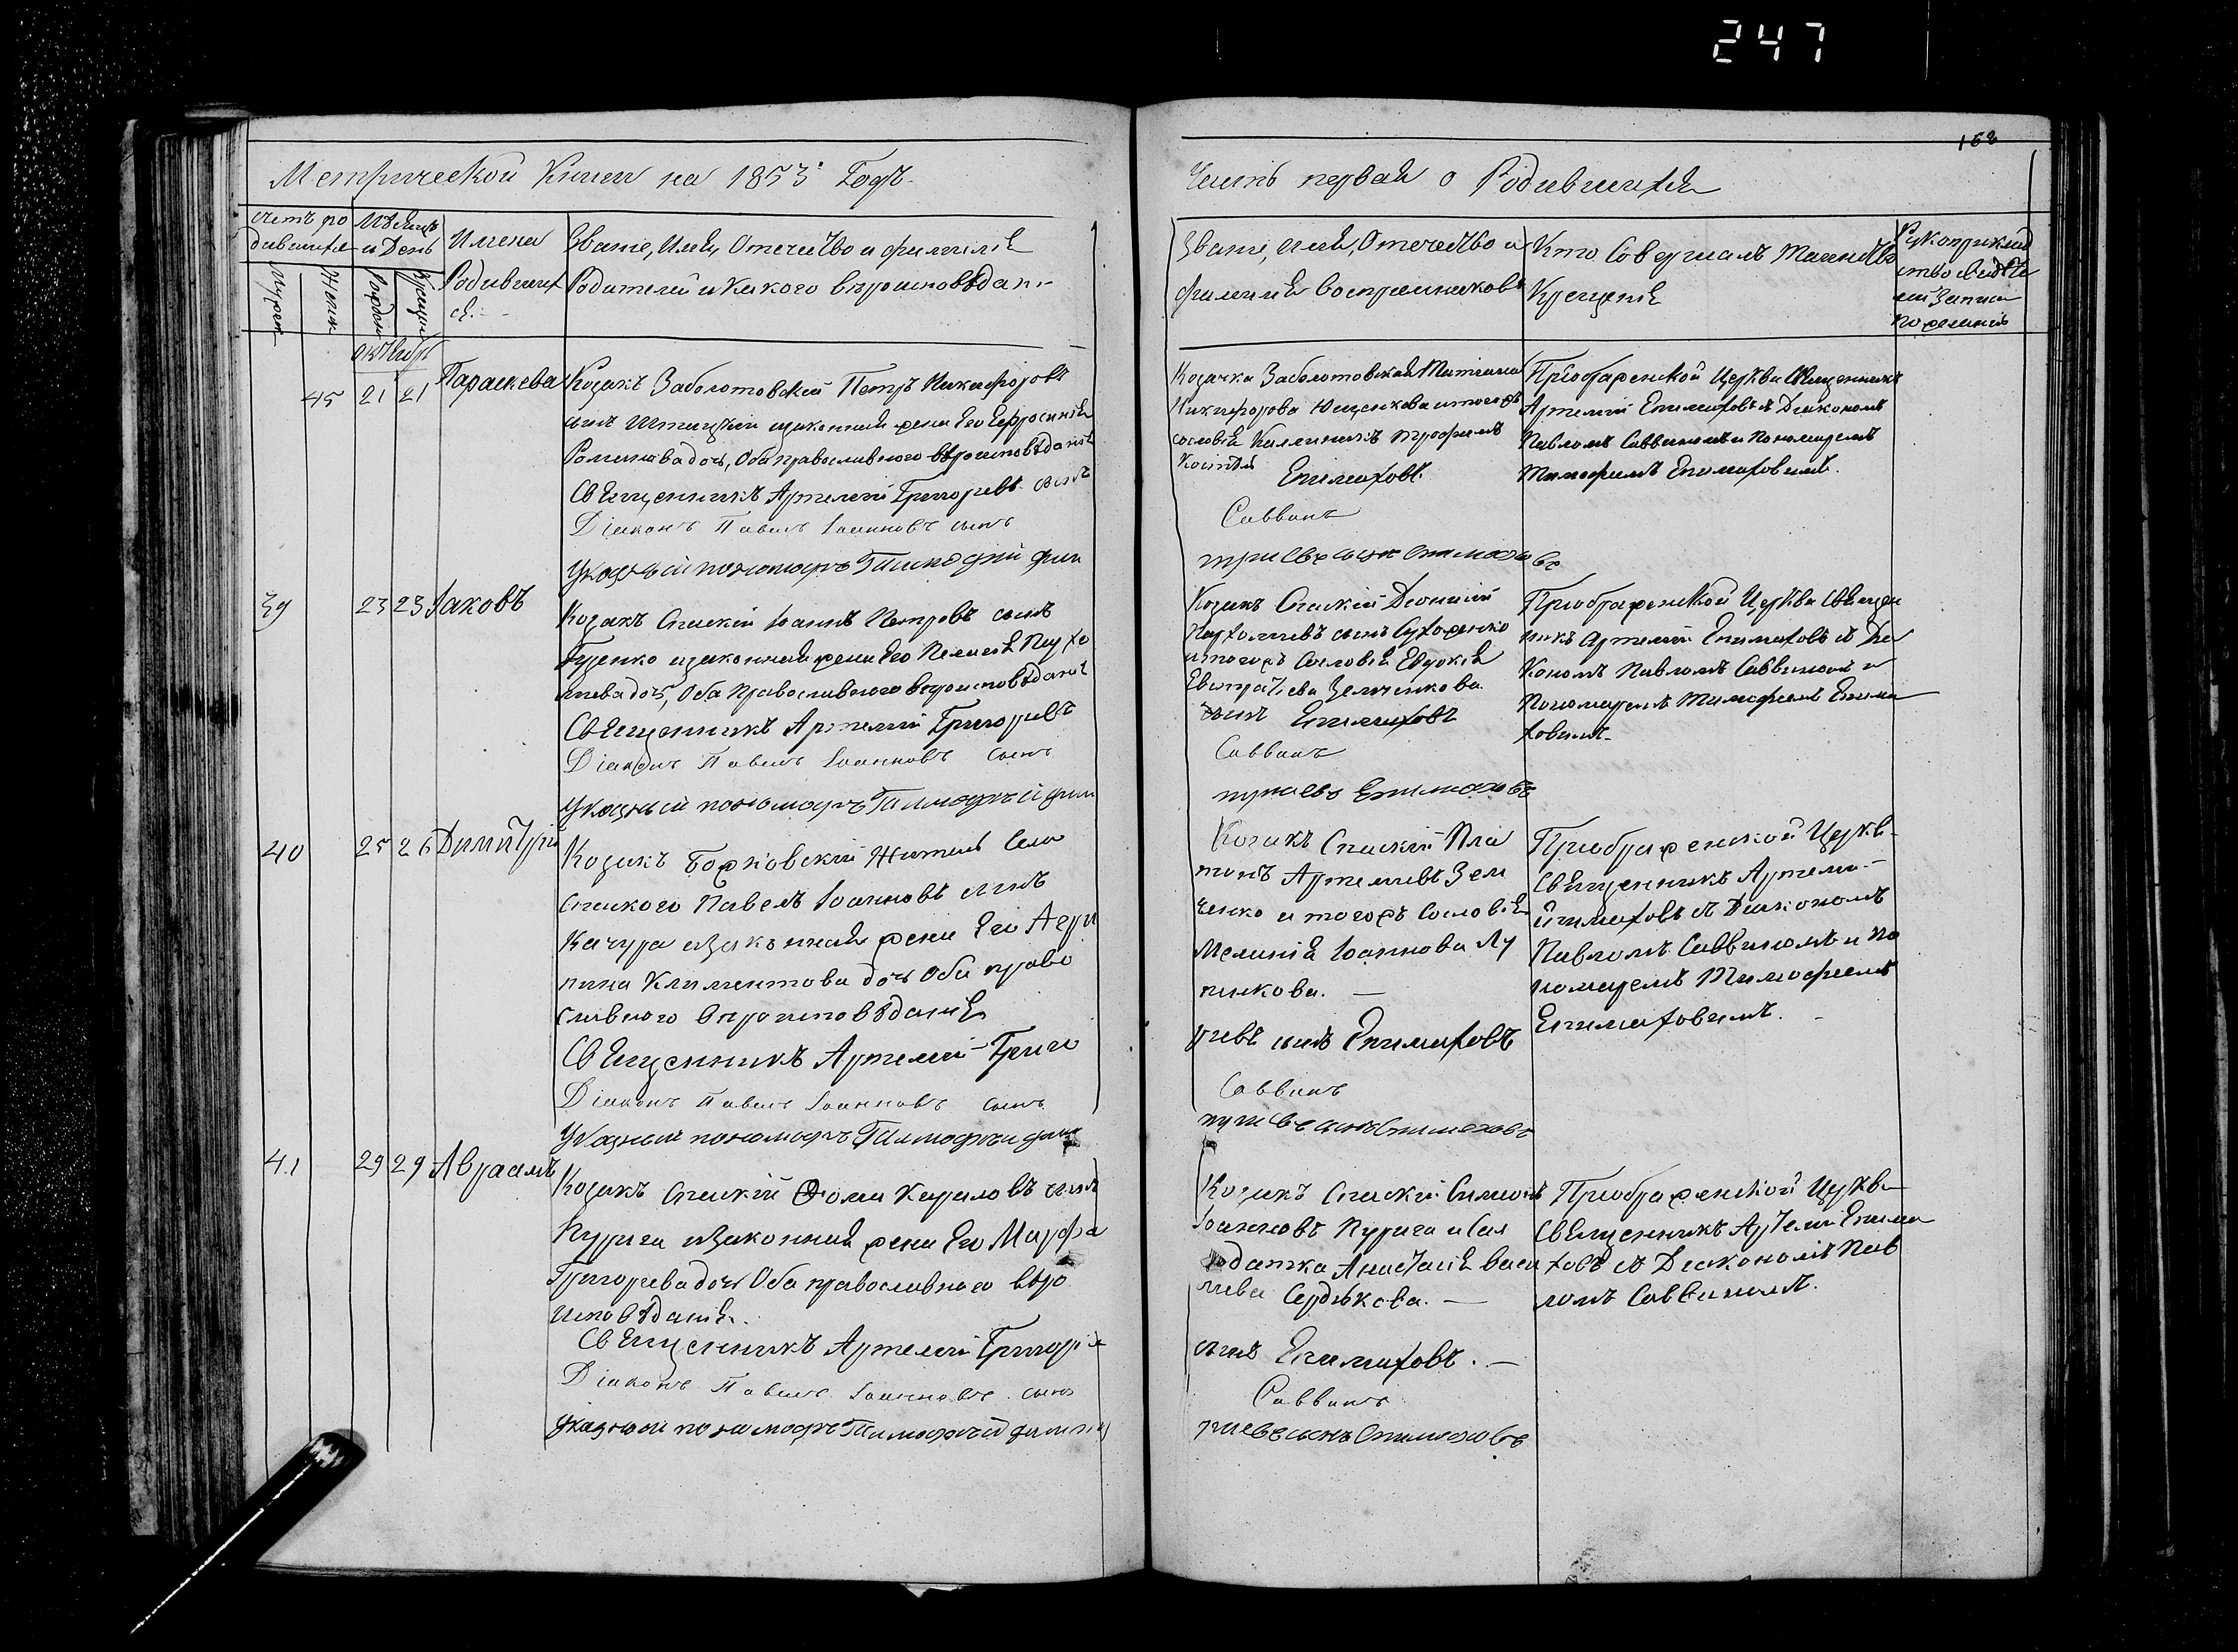 247
162
Метрической Книги на 1853 Годъ.
Часть первая о Родившихся
Счетъ ро
дившихся
Мѣсяцъ
и День
Имена
Родивших
ся.
Званіе, Имя, Отечество и фамилія
Родителей и какого вѣроисповѣданія
Мужск
Женск
Рожден
Крещен
Званіе, имя, Отечество и
фамилія воспріемниковъ
Кто Совершалъ Таинство
Крещенія
Рукоприклад
ство свидѣте
лей Записи
по желанію
Октября
45 21 21 Параскева
Козакъ Заболотовскій Петръ Никифоровъ
сынъ законная жена Его Ефросинія
Романова дочь, Оба православнаго вѣроисповѣданія
Священникъ Артемій Григорьевъ сынъ
Діаконъ Павелъ Іоанновъ сынъ
Указный пономарь Тимофей
Козачка Заболотовская Татіана
Никифорова Ющенкова и тогожъ
сословія Каллиникъ Трофимъ
Епимаховъ.
Саввинъ
сынъ Епимаховъ
Преображенской Церкви Священникъ
Артемій Епимаховъ съ Діакономъ
Павломъ Саввинымъ и Пономаремъ
Тимофеемъ Епимаховымъ.
39 23 23 Іаковъ
Козакъ Спаскій Іоаннъ Петровъ сынъ
Гуценко законная жена Его Пелагія Пархо
міева дочь, Оба Православнаго вѣроисповѣданія
Священникъ Артемій Григорьевъ
Діаконъ Павелъ Іоанновъ сынъ
Указный пономарь Тимофѣй
Козакъ Спаскій Діонисій
Пархоміевъ сынъ
и тогожъ Сословія Евдокія
Евстратіева Зельченкова
сынъ Епимаховъ
Саввинъ
Епимаховъ
Преображенской Церкви Священ
никъ Артемій Епимаховъ съ Діа
кономъ Павломъ Саввинымъ и
Пономаремъ Тимофеемъ Епима
ховымъ.
40 25 26 Димитрій
Козакъ Борковскій Житель Села
Спаского Павелъ Іоанновъ сынъ
Качура законная жена Его Агри
пина Климентова дочь Оба право
славного вѣроисповѣданія
Священникъ Артемій Григо
Діаконъ Павелъ Іоанновъ сынъ
Указный пономарь Тимофѣй
Козакъ Спаскій Пла
тонъ Артеміевъ Зель
ченко и тогожъ Сословія
Меланія Іоаннова Лу
пикова.
рьевъ сынъ Епимаховъ
Саввинъ
сынъ Епимаховъ
Преображенской Церкви
Священникъ Артемій
Епимаховъ съ Діакономъ
Павломъ Саввинымъ и по
номаремъ Тимофеемъ
Епимаховымъ.
41 29 29 Авраамъ
Козакъ Спаскій Фома Кириловъ сынъ
Курига законная жена Его Марфа
Григорьева дочь Оба православнаго вѣро
исповѣданія.
Священникъ Артемій Григорье
Діаконъ Павелъ Іоанновъ сынъ
Указный пономарь Тимофѣй
Козакъ Спаскій Симеонъ
Іоанновъ Курига и Сол
датка Анастасія Васи
лиева Сердюкова.
сынъ Епимаховъ.
Саввинъ
сынъ Епимаховъ
Преображенской Церкви
Священникъ Артемій Епима
ховъ съ Діакономъ Пав
ломъ Саввинымъ.